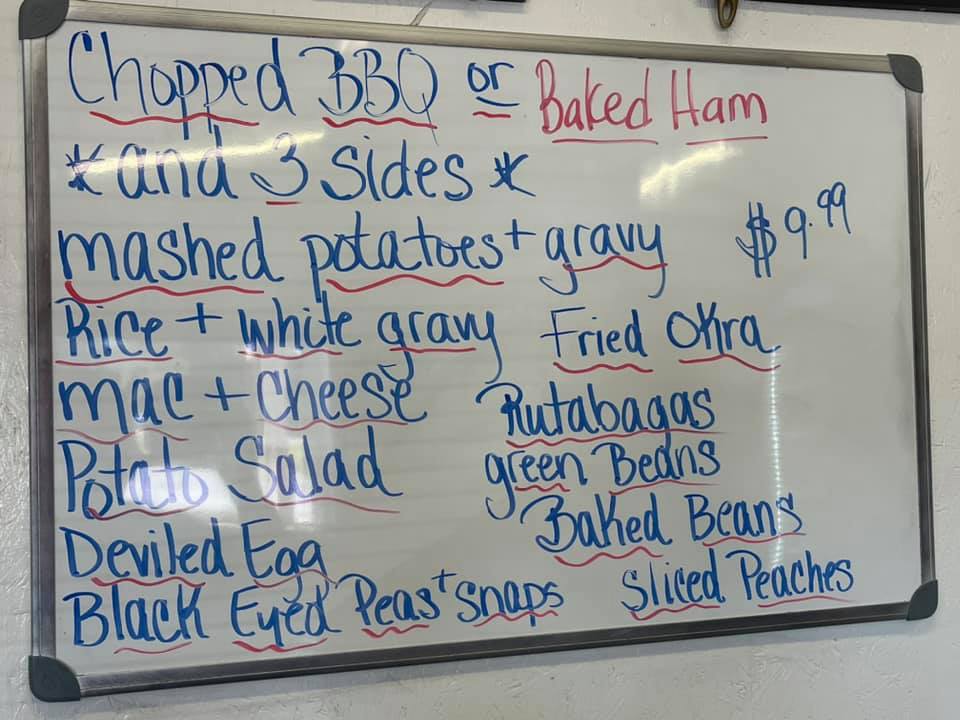 Chopped BBQ or Baked Ham
*and 3 sides*
mashed potatoes + gravy
$9.99
Rice + white gravy
Fried Okra
mac + cheese
Rutabagas
Potato Salad
green Beans
Baked Beans
Deviled Egg
Black Eyed Peas + snaps
Sliced Peaches